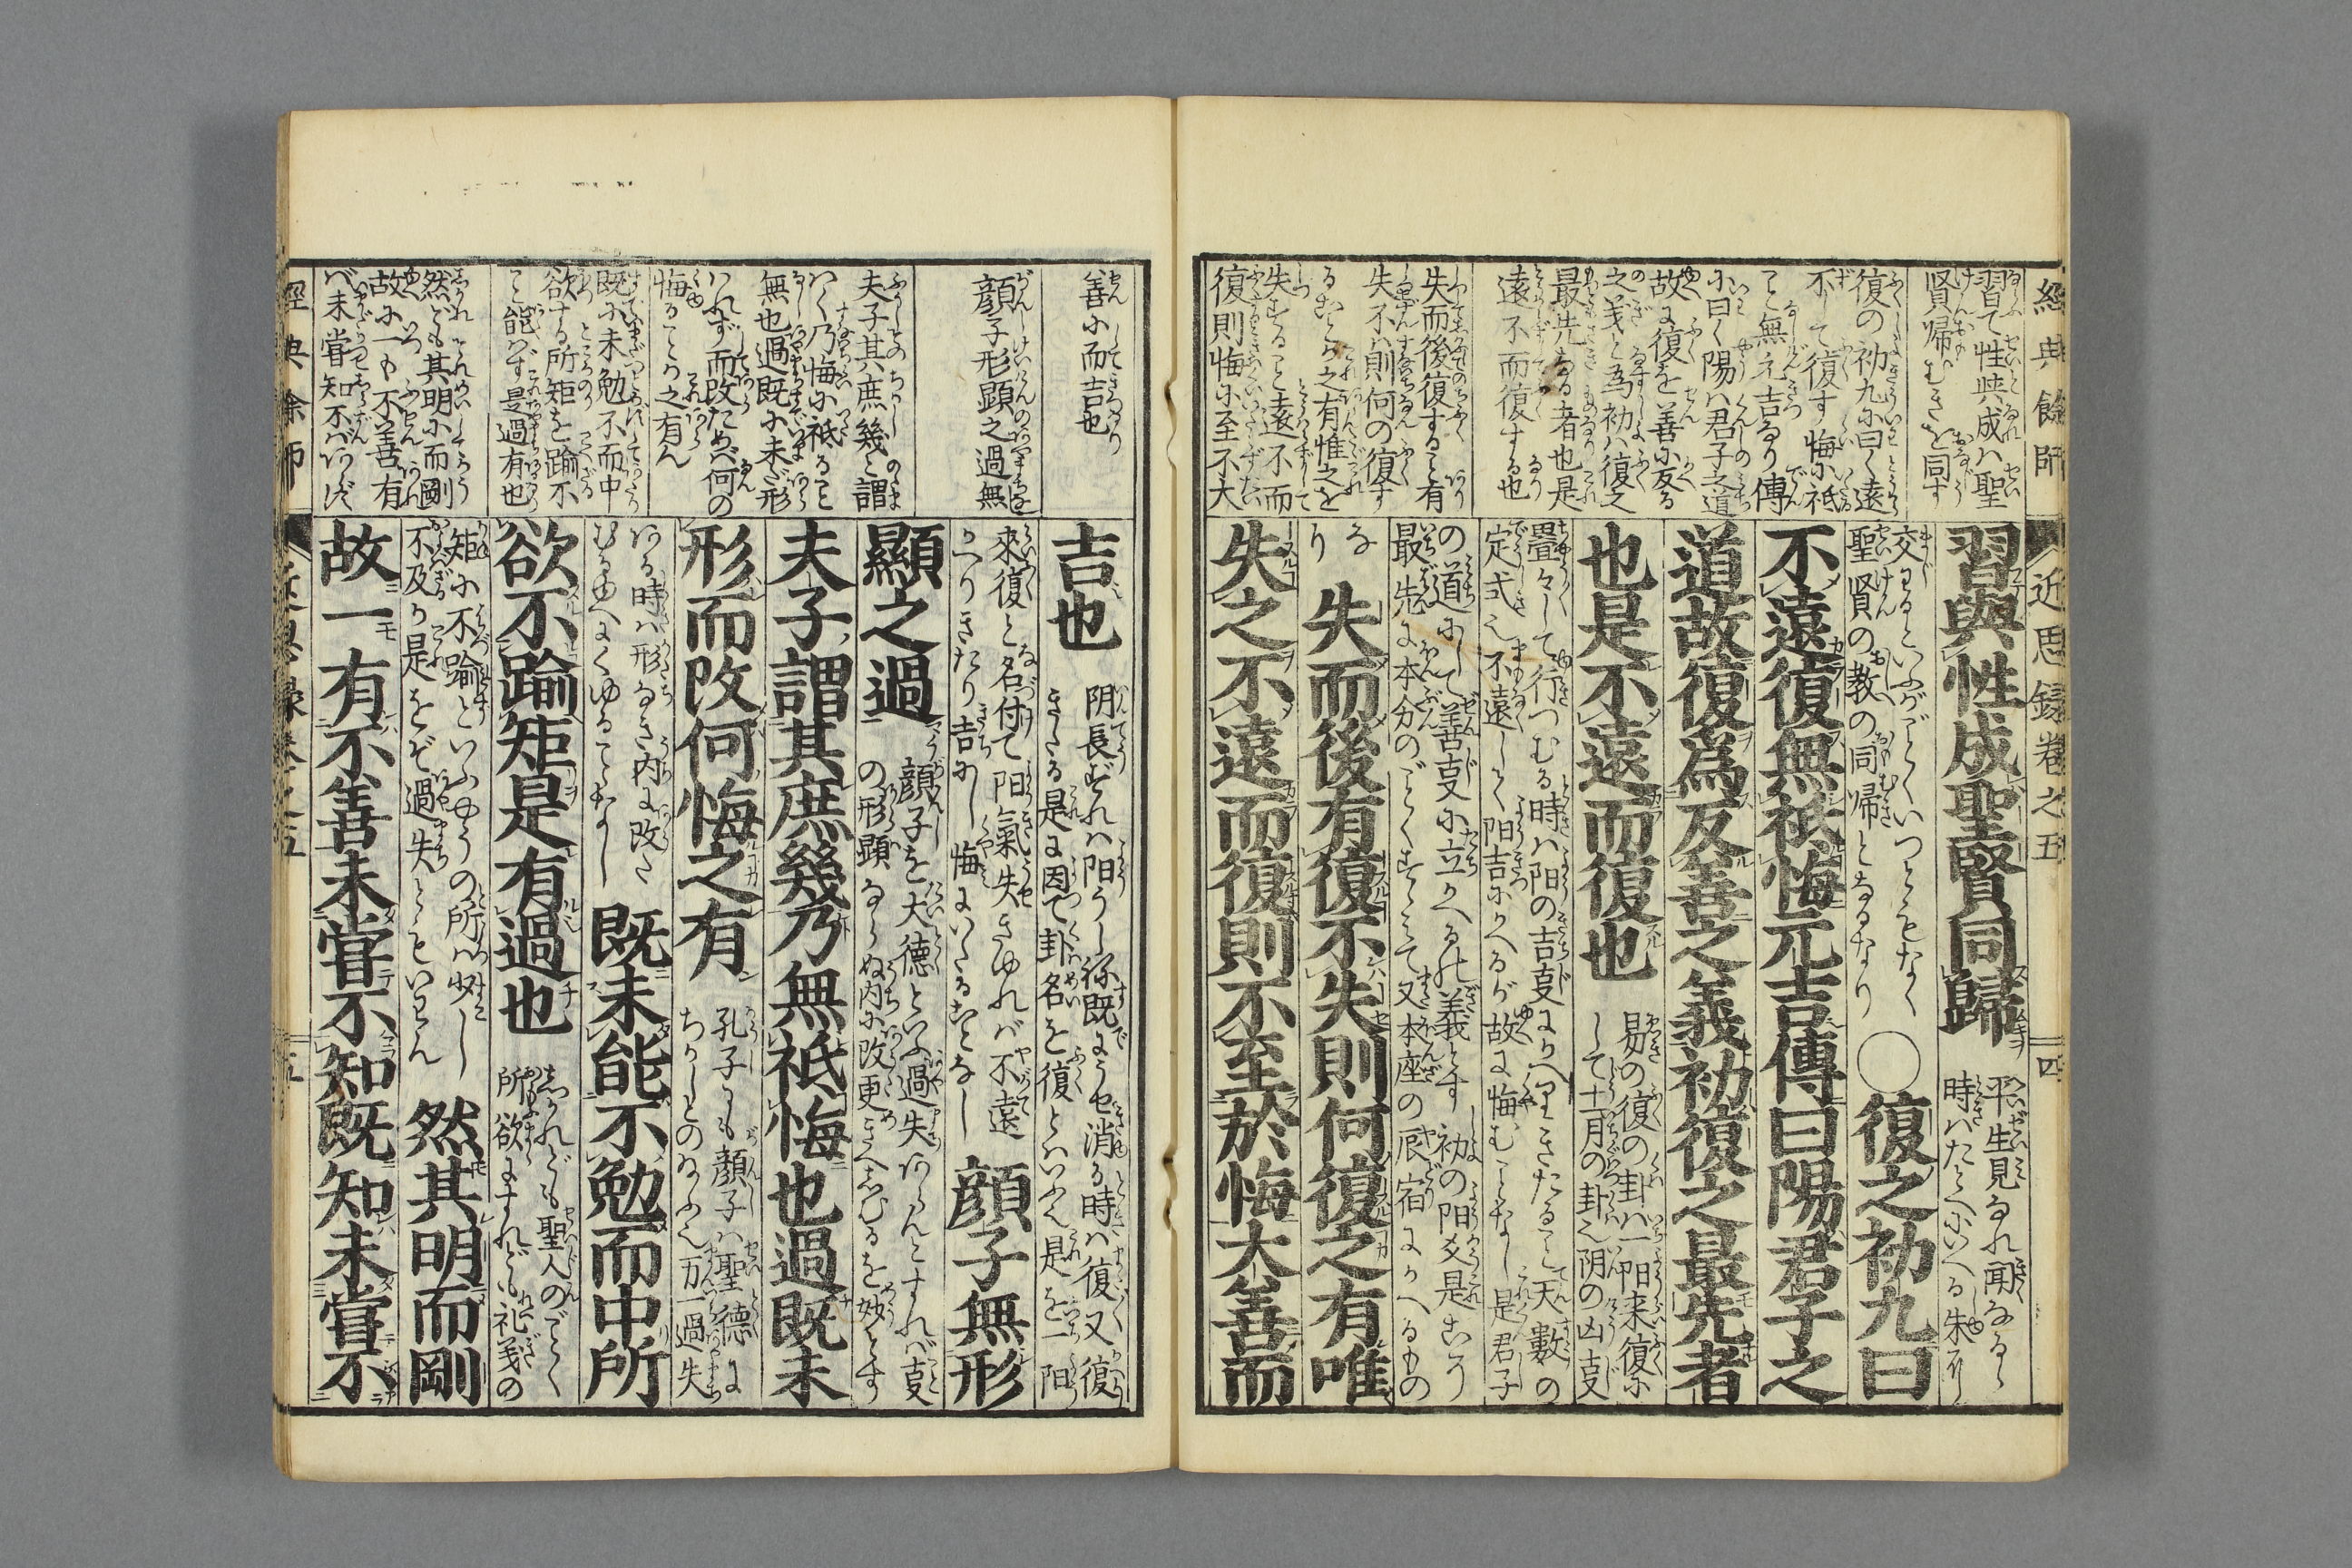 經典餘師
近思録卷之五
四
習て性與成ハ聖
賢帰むきを同す
復の初九に曰く遠
不して復す悔に祗
こと無元吉なり傳
に曰く陽ハ君子之道
故に復を善に反る
之義と為初ハ復之
最先なる者也是
遠不而復する也
失而後復すること有
失不ハ則何の復す
ることか之有惟之を
失すること遠不而
復則悔に至不大
習與性成聖賢同歸
平生見なれ聞なるゝ
時ハたとへにいへる朱に
交わるといふがごとくいつともなく
聖賢の教の同帰となるなり
○復之初九曰
不遠復無祗悔元吉傳曰陽君子之
道故復為反善之義初復之最先者
也是不遠而復也
易の復の卦ハ一阳来復に
して十一月の卦也阴の凶事
畳々して行つむる時ハ阳の吉事にかへりきたること天數の
定式也不遠しく阳吉にかへるが故に悔むことなし是君子
の道にして善事に立かへるの義とす初の阳爻是こう
最先に本分のごとくすゝみて又本座の辰宿にかへるもの
なり
失而後有復不失則何復之有唯
失之不遠而復則不至於悔大善而
善に而吉也
顔子形顕之過無
夫子其庶幾と謂
乃悔に祗ること
無也過既に未だ形
れず而改ため何の
悔ることか之有ん
既に未勉不而中
欲する所矩を踰不
こと能ハず是過有也
然ども其明に而剛
故に一も不善有
バ未嘗知不バあらず
吉也
阴長ずれハ阳うしなひ既に消る時ハ復又復
きたる是に因て卦名を復とハいふ也是を一阳
來復と名付て阳氣失きゆれバ不遠
かへりきたり吉にし悔にいたることなし
顔子無形
顯之過
顔子を大德といふ過失あらんとすれバ事
の形顕ならぬ内に改更きへしむるを妙とす
夫子謂其庶幾乃無祗悔也過既未
形而改何悔之有
孔子も顔子ハ聖德に
ちかしとのたまふ也万一過失
ある時ハ形なき内に改た
むるゆへにくゆることなし
既未能不勉而中所
欲不踰矩是有過也
しかれども聖人のごとく
所欲にすれども礼義の
矩に不踰といふやうの所ハ少し
不及か是をぞ過失ともいわん
然其明而剛
故一有不善未嘗不知既知未嘗不
經典餘師
近思録卷之五
五